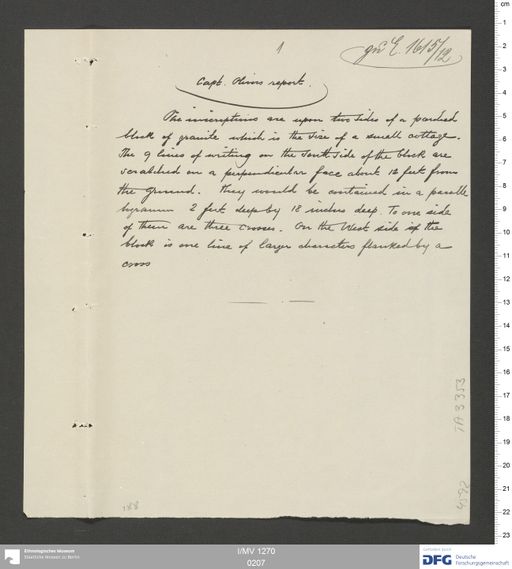 1
zu E. 1615/12
Capt. Olivers report.
The inscriptions are upon two sides of a parched
block of granite which is the size of a small cottage.
The 9 lines of writing on the South side of the block are
scratched on a perpendicular face about 12 feet from
the ground. They would be contained in a paralle
logramm 2 feet deep by 18 inches deep. To one side
of them are three crosses. On the West side of the
block is one line of larger characters flanked by a
cross
TA 3353
188
cm
1
2
3
4
5
6
7
8
9
10
11
12
13
14
15
16
17
18
19
20
21
22
23
Ethnologisches Museum
Staatliche Museen zu Berlin
I/MV 1270
0207
Gefördert durch
DFG
Deutsche
Forschungsgemeinschaft